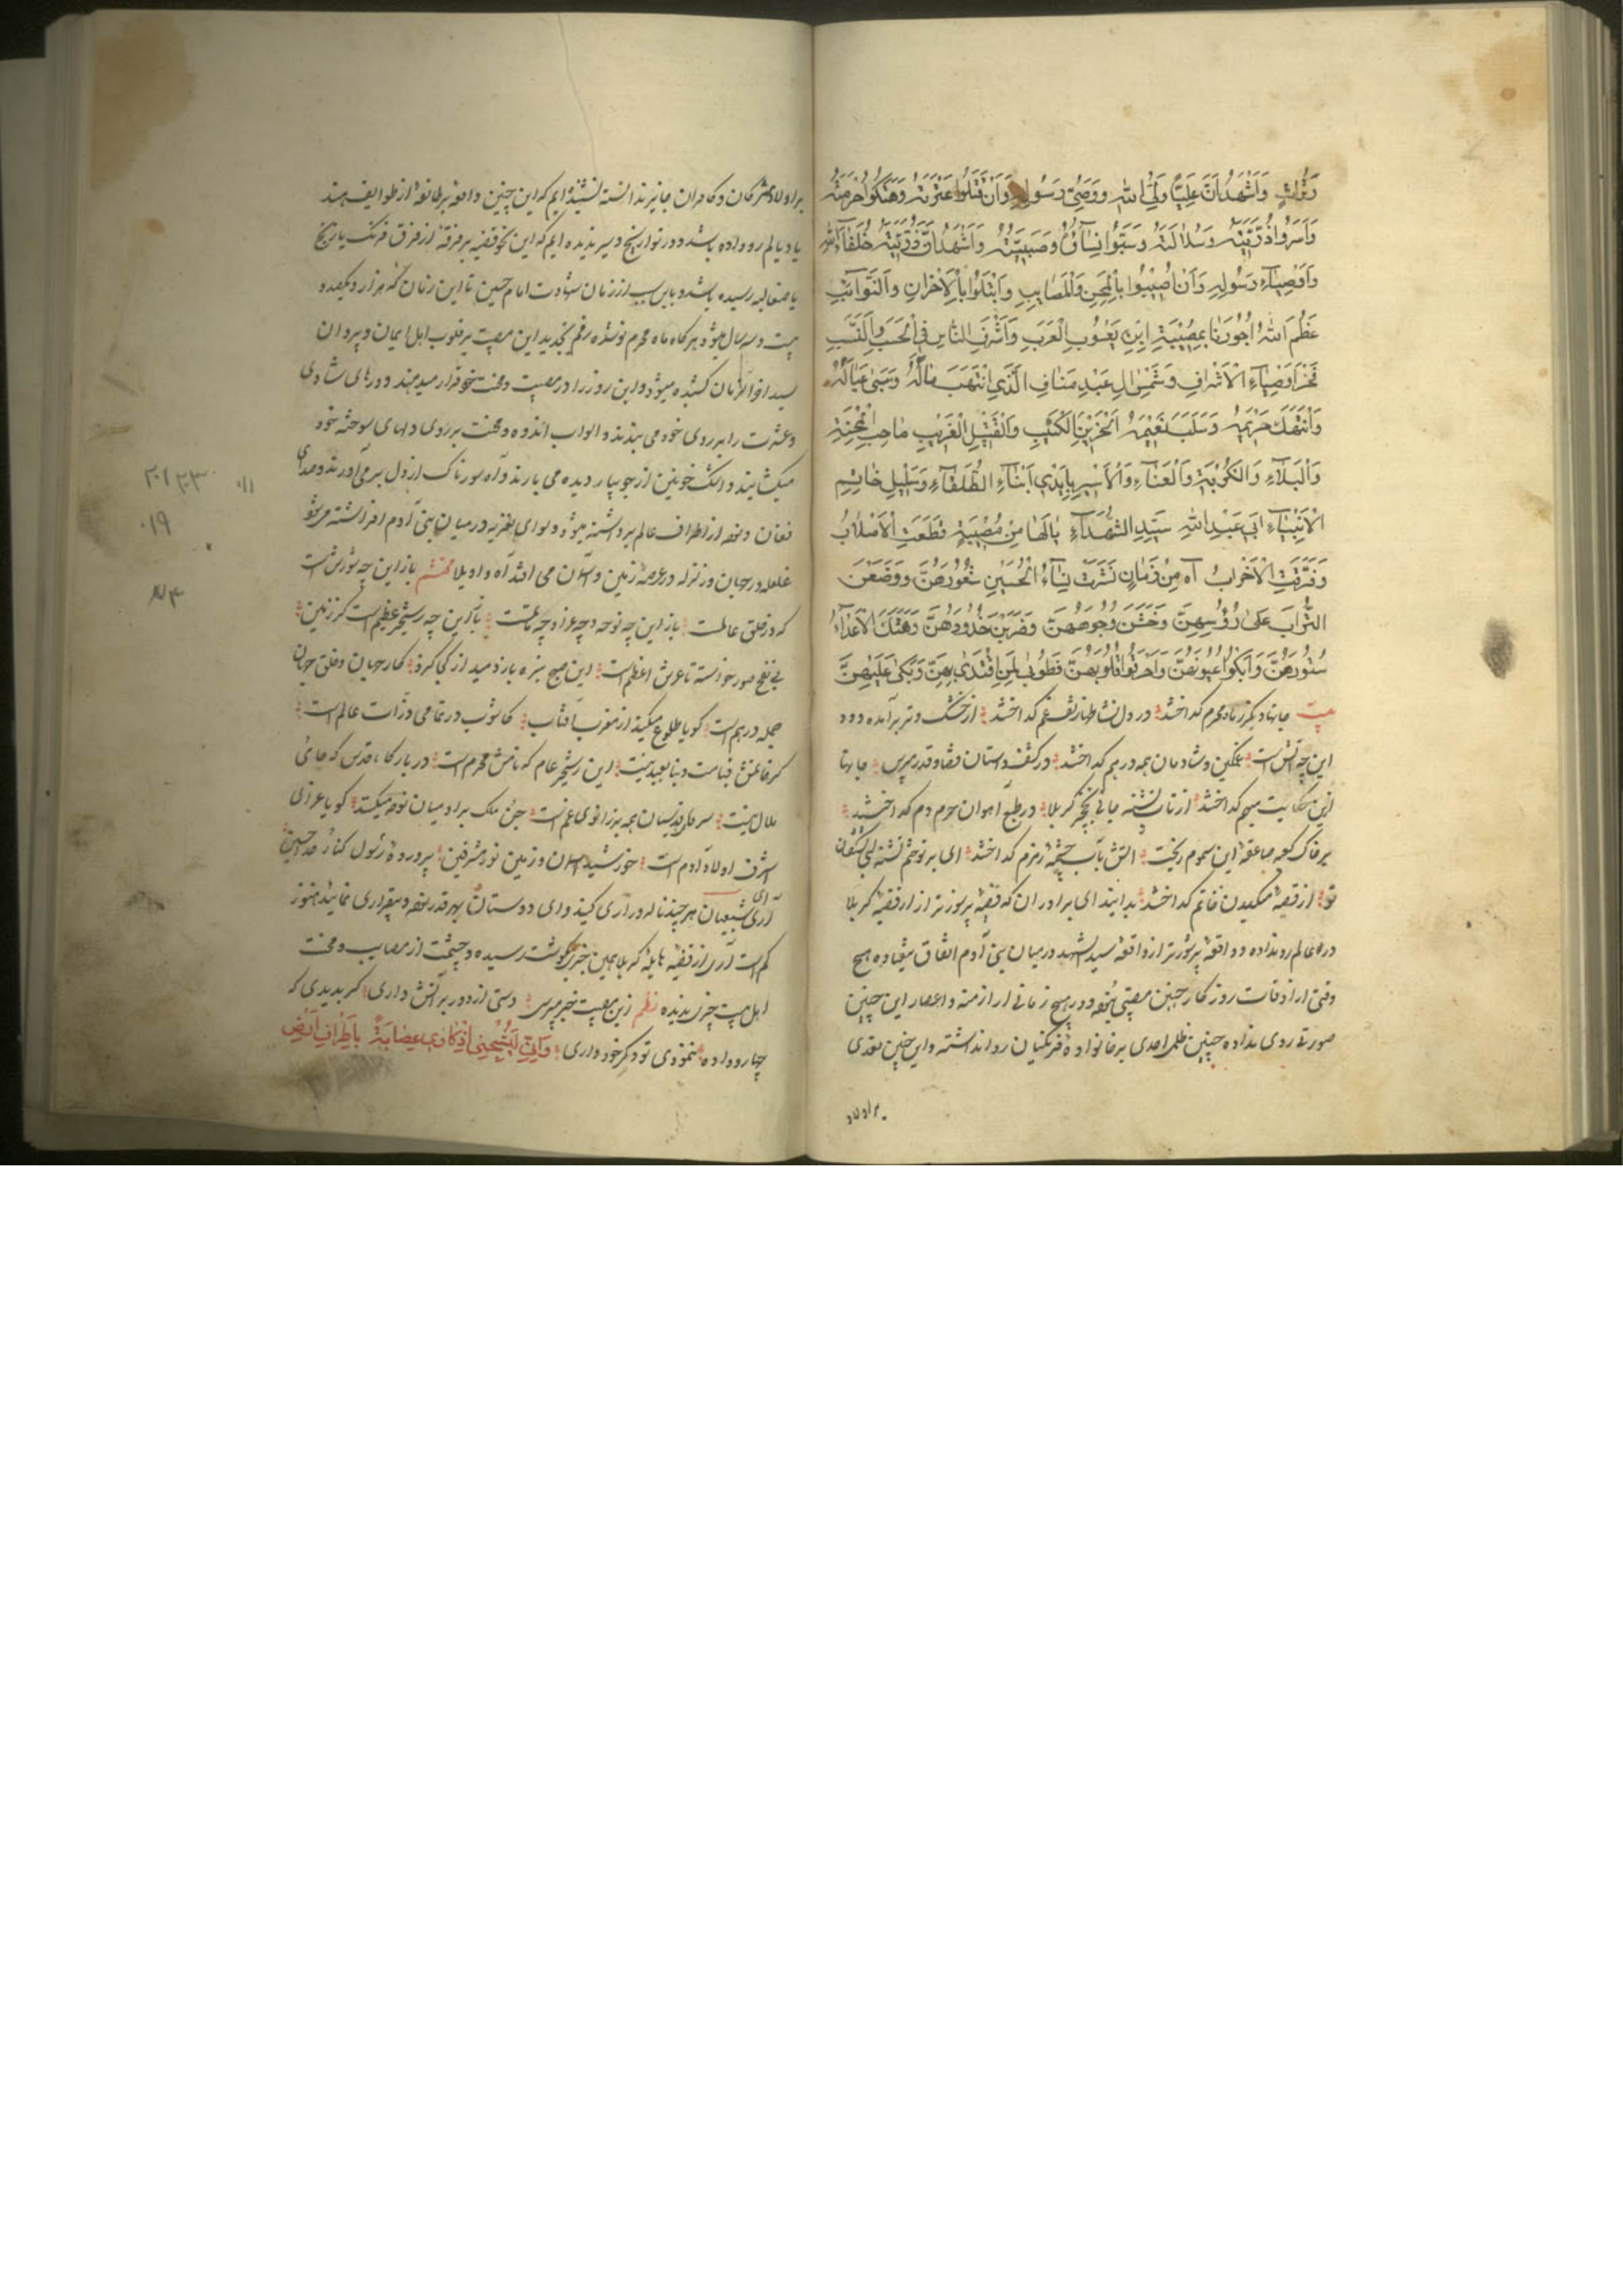 وَاَشْهَدُ اَنَّ عَلِيًّا وَلِيُّ اللهِ وَوَصِيُّ رَسُولِهِ وَاَنْ قَتَلُوا عِتْرَتَهُ وَهَتَكُوا حُرْمَتَهُ
وَاَسَرُوا ذُرِّيَّتَهُ وَسُلَالَتَهُ وَسَبَوْا نِسَآئَهُ وَصَبِيَّتَهُ وَاَشْهَدُ اَنَّ ذُرِّيَّتَهُ خُلَفَآءُ اللهِ
وَاَوْصِيَآءُ رَسُولِهِ وَاَنْ اُصِيْبُوا بِالْمِحَنِ وَالْمَصَايِبِ وَابْتَلَوْا بِالْاَحْزَانِ وَالنَّوَآئِبِ
عَظَّمَ اللهُ اُجُورَنَا بِمُصِيْبَةِ ابْنِ يَعْسُوبِ الْعَرَبِ وَاَشْرَفِ النَّاسِ فِي الْحَسَبِ وَالنَّسَبِ
فَخْرِ اَوْصِيَآءِ الْاَشْرَافِ وَشَمْسِ الِ عَبْدِ مَنَافِ الَّذِي انْتَهَبَ مَالُهُ وَسُبِيَ عِيَالُهُ
وَانْتَهَكَ حَرِيْمُهُ وَسَلَبَ نَعِيْمُهُ الْحَزِيْنِ الْكَئِيْبِ وَالْقَتِيْلِ الْغَرِيْبِ صَاحِبِ الْمِحْنَةِ
وَالْبَلَآءِ وَالْكُرْبَةِ وَالْعَنَآءِ وَالْاَسِيْرِ بِاَيْدِي اَبْنَآءِ الطُّلَقَآءِ وَسَلِيْلِ خَاتَمِ
الْاَنْبِيَآءِ اَبِي عَبْدِ اللهِ سَيِّدِ الشُّهَدَآءِ يَالَهَا مِنْ مُصِيْبَةٍ قَطَعَتِ الْاَصْلَابُ
وَفَرَّقَتِ الْاَحْزَابُ آه مِنْ زَمَانٍ نَشَرَتْ نِسَآءُ الْحُسَيْنِ شُعُورَهُنَّ وَوَضَعْنَ
التُّرَابَ عَلَى رُؤُسِهِنَّ وَخَمَشْنَ وُجُوهَهُنَّ وَضَرَبْنَ خُدُودَهُنَّ وَهَتَكَ الْاَعْدَآءُ
سُتُورَهُنَّ وَاَبْكَوْا عُيُونَهُنَّ وَاَحْرَقُوا قُلُوبَهُنَّ فَطُوبَى لِمَنِ اقْتَدَى بِهِنَّ وَبَكَى عَلَيْهِنَّ
بيت جانها دیگر ز ماه محرم گداختند در دل نشاطها ز تف غم گداختند از خشک و تر برآمده دود
این چه آتش است غمگین و شادمان همه در هم گداختند در کشف داستان قضا و قدر مپرس جانها
ازین حکایت مبهم گداختند از تاب تشنه جانی نخچیر کربلا در طبع آهوان حرم دم گداختند
بر خاک کعبه صاعقه این سموم ریخت آتش بآب چشمه زمزم گداختند ای بر تو ختم تشنه لبی
تو از قصه مکیدن خاتم گداختند بدانید ای برادران که قضیه پرسوزتر از قضیه کربلا
در عالم رو نداده و واقعه پرشورتر از واقعه سید الشهدا در میان بنی آدم اتفاق نیفتاده هیچ
وقتی از اوقات روزگار چنین مصیبتی ندیده و در هیچ زمانی از ازمنه و اعصار این چنین
صورتی روی نداده چنین ظلم احدی بر خانواده فرنگیان روا نداشته و این چنین تعدی
بر اولاد
بر اولاد مشرکان و کافران جایز ندانسته نشنیده ایم که این چنین واقعه بر طایفه از طوایف هند
یا دیالم رو داده باشد و در تواریخ و سیر ندیده ایم که این نحو قضیه بر فرقه از فرق فرنک یا ریخ
یا صقالبه رسیده باشد و باین سبب از زمان شهادت امام حسین تا این زمان که هزار و یکصد و
بیست و سه سال میشود هرگاه ماه محرم نو شده رقم تجدید این مصیبت بر قلوب اهل ایمان و پیروان
سید اخر الزمان کشیده میشود و این روز را در مصیبت و محنت بخود قرار میدهند و درهای شادی
و عشرت را بر روی خود می بندند و ابواب اندوه و محنت بر روی دلهای سوخته خود
میکشایند و اشک خونین از جویبار دیده می بارند و آه سوزناک از دل بر می آورند و صدای
فغان و نوحه از اطراف عالم برداشته میشود و لوای تعزیه در میان بنی آدم افراشته میشود
غلغله در جهان و زلزله در عرصه زمین و آسمان می افتد آه و اویلا محتشم باز این چه شورش است
که در خلق عالمست باز این چه نوحه و چه عزا و چه ماتمست باز این چه رستخیز عظیم است کز زمین
بی نفخ صور خواسته تا عرش اعظم است این صبح تیره باز دمید از کجا کزو کار جهان و خلق جهان
جمله در هم است گویا طلوع میکند از مغرب آفتاب کاشوب در تمامی ذرات عالم است
گر خوانمش قیامت دنیا بعید نیست این رستخیز عام که نامش محرم است در بارگاه قدس که جای
ملال نیست سرهای قدسیان همه بر زانوی غم است جن و ملک بر ادمیان نوحه میکنند گویا عزای
اشرف اولاد آدم است خورشید آسمان و زمین نور مشرقین پرورده رسول کنار خدا حسین
آری ای شیعیان هر چند ناله و زاری کنید و ای دوستان هر قدر نوحه و بیقراری نمائید هنوز
کم است آری از قضیه هایله کربلا همین خبری بگوشت رسیده و چشمت از مصایب و محنت
اهل بیت چیزی ندیده نظم زین مصیبت خبر مپرس دستی از دور بر آتش داری گر بدیدی که
چها رو داده ننمودی تو دگر خود داری وَاِنِّي لَيُشْجِيْنِي اِذْكَارِي عِصَابَةً بِاَطْرَافِ اَرْضِ